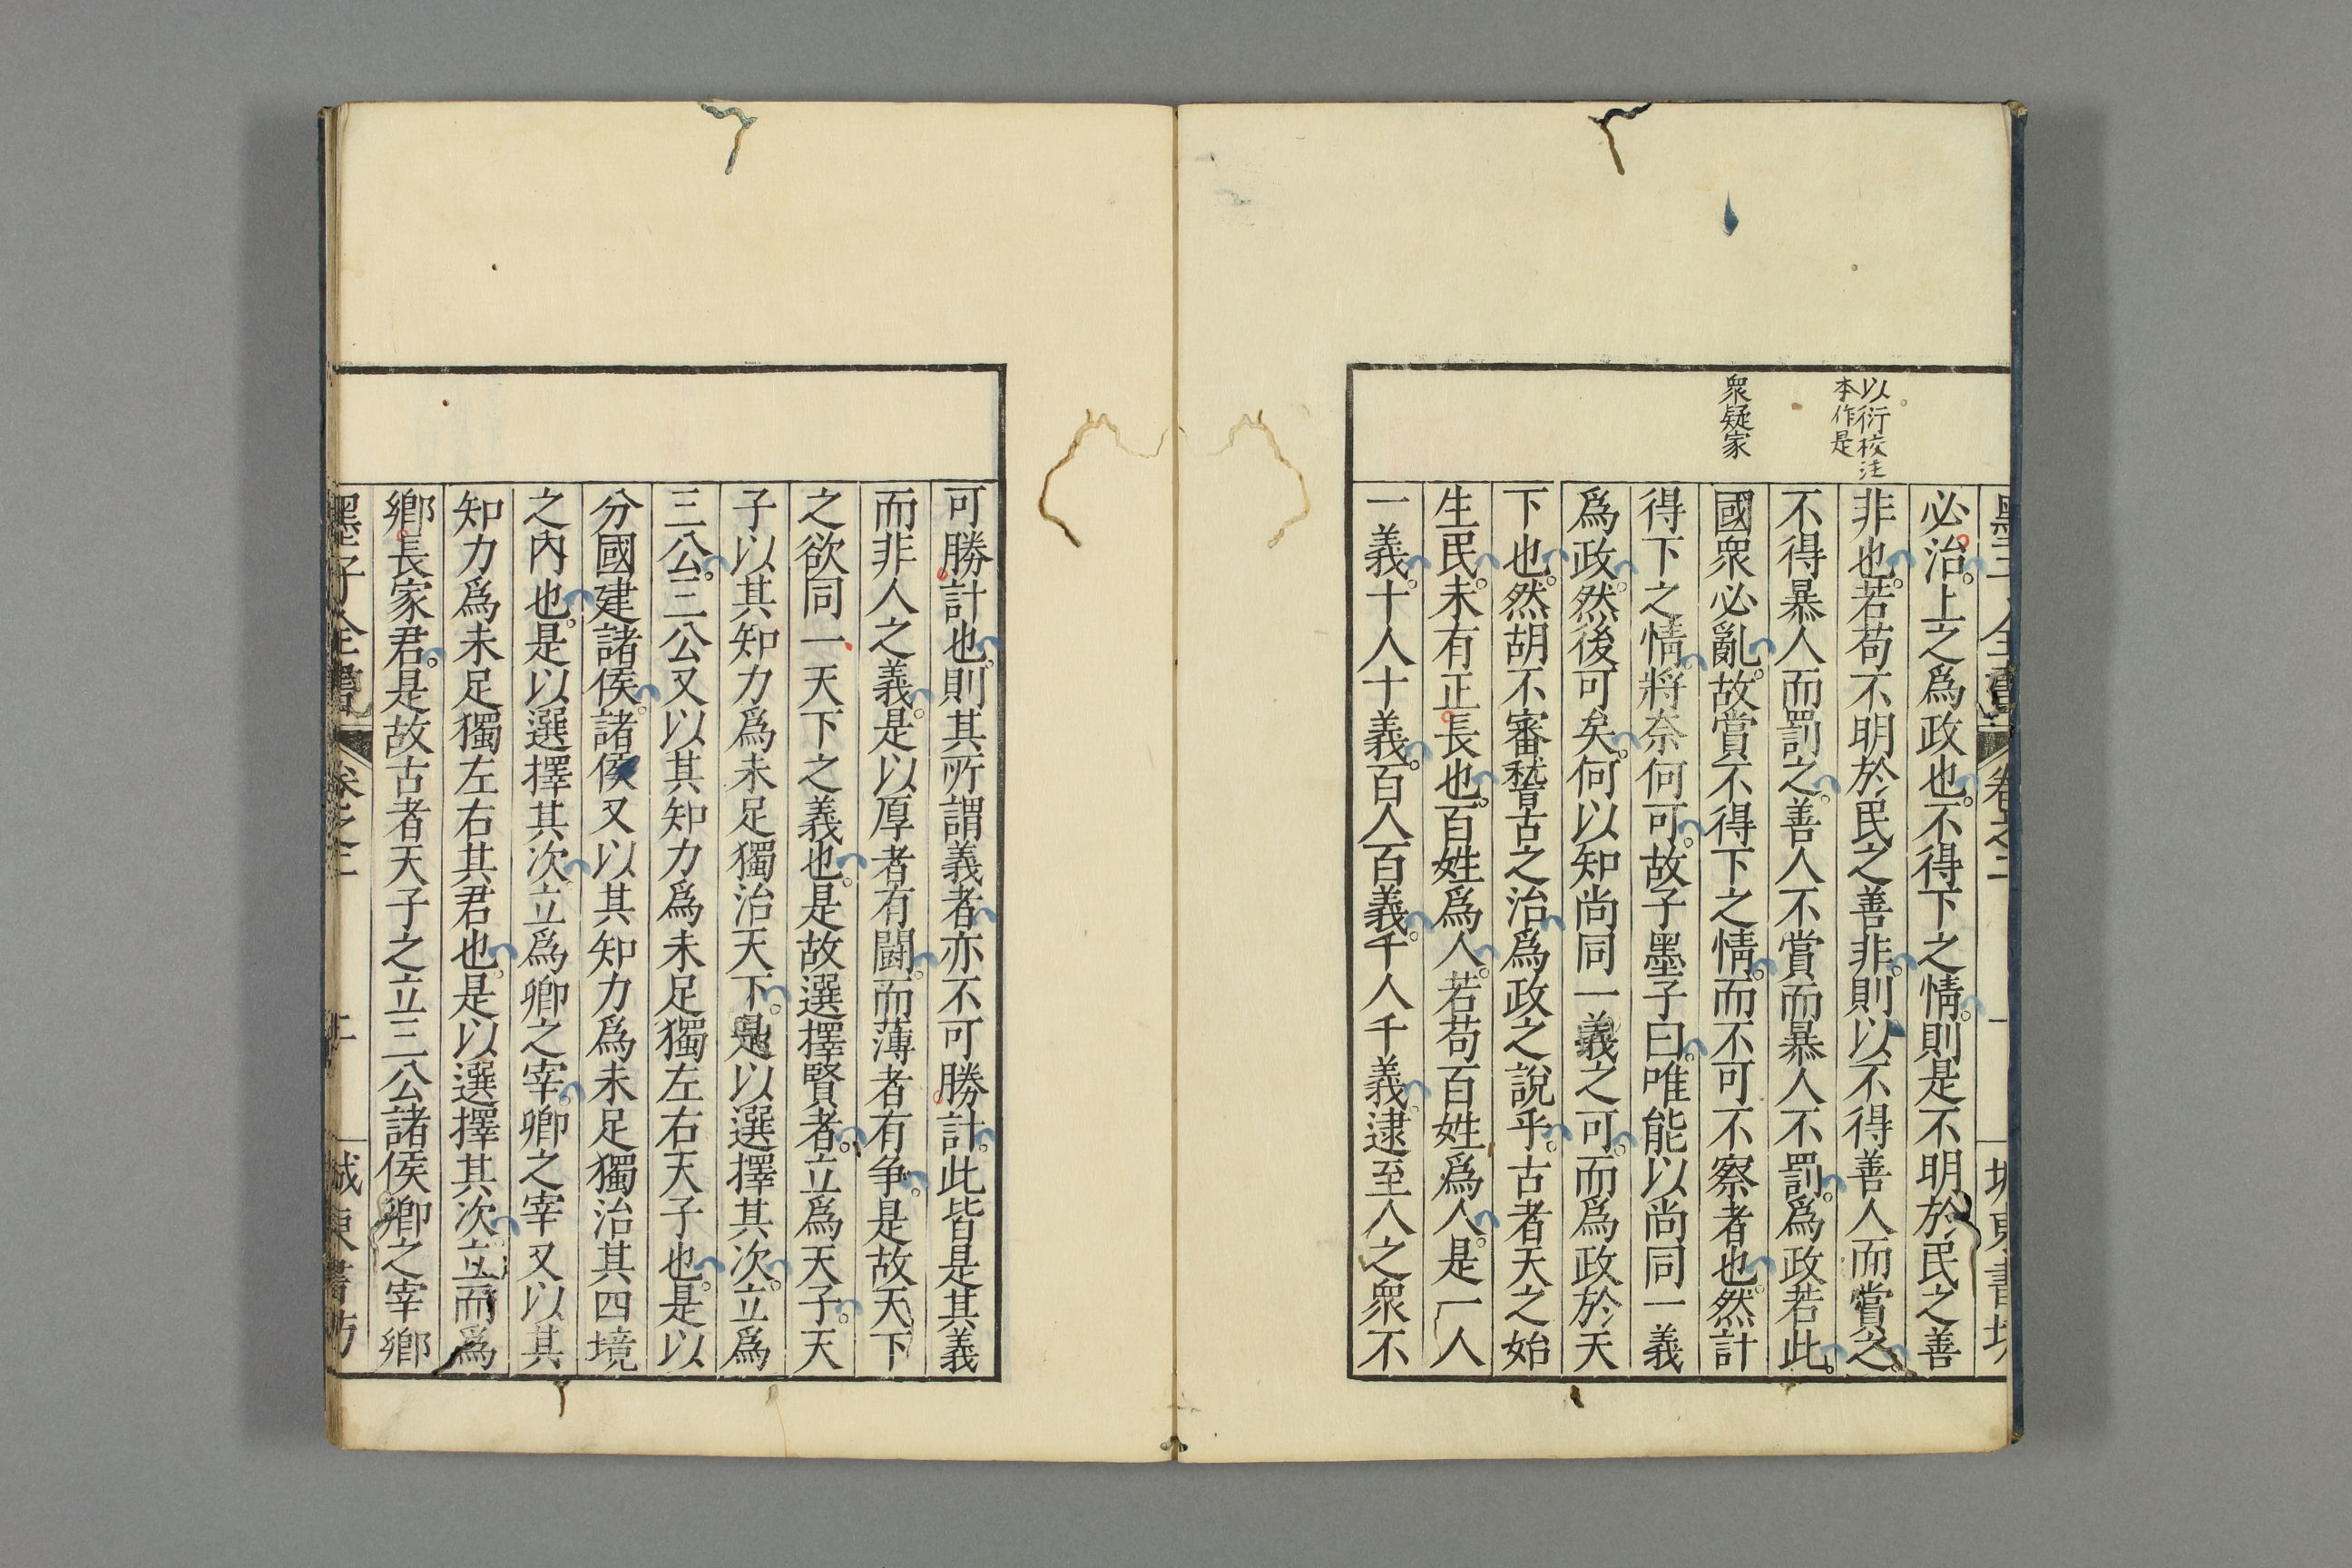 以衍校注
本作是
衆疑家
必治。上之爲政也。不得下之情。則是不明於民之善
非也。若苟不明於民之善非。則以不得善人而賞之。
不得暴人而罰之。善人不賞而暴人不罰。爲政若此。
國衆必亂。故賞不得下之情。而不可不察者也。然計
得下之情。將奈何可。故子墨子曰。唯能以尚同一義
爲政。然後可矣。何以知尚同一義之可。而爲政於天
下也。然胡不審稽古之治。爲政之說乎。古者天之始
生民。未有正長也。百姓爲人。若苟百姓爲人。是一人
一義。十人十義。百人百義。千人千義。逮至人之衆不
可勝計也。則其所謂義者。亦不可勝計。此皆是其義
而非人之義。是以厚者有鬪。而薄者有争。是故天下
之欲同一天下之義也。是故選擇賢者。立爲天子。天
子以其知力爲未足獨治天下。是以選擇其次。立爲
三公。三公又以其知力爲未足獨左右天子也。是以
分國建諸侯。諸侯又以其知力爲未足獨治其四境
之內也。是以選擇其次。立爲卿之宰。卿之宰又以其
知力爲未足獨左右其君也。是以選擇其次。立而爲
鄉長家君。是故古者天子之立三公諸侯卿之宰鄉